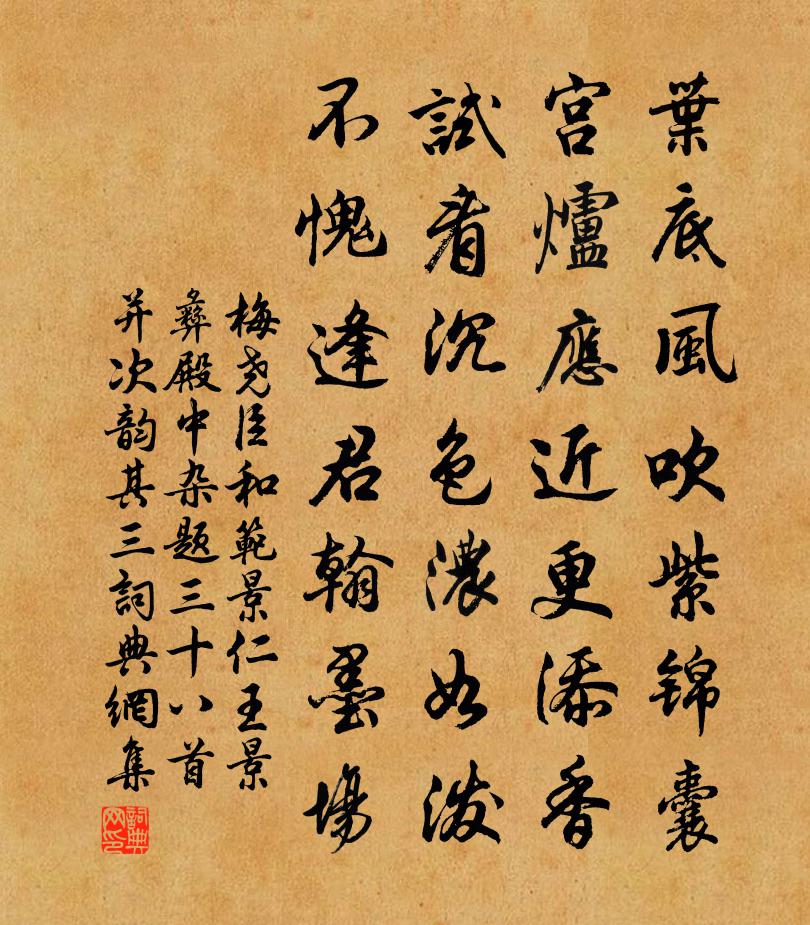 葉底風吹紫錦囊
宮爐應近更添香
試看沉色濃如潑
不愧逢君翰墨場
梅堯臣和範景仁王景
彝殿中杂題三十八首
并次韵其三詞典網集
詞典网印